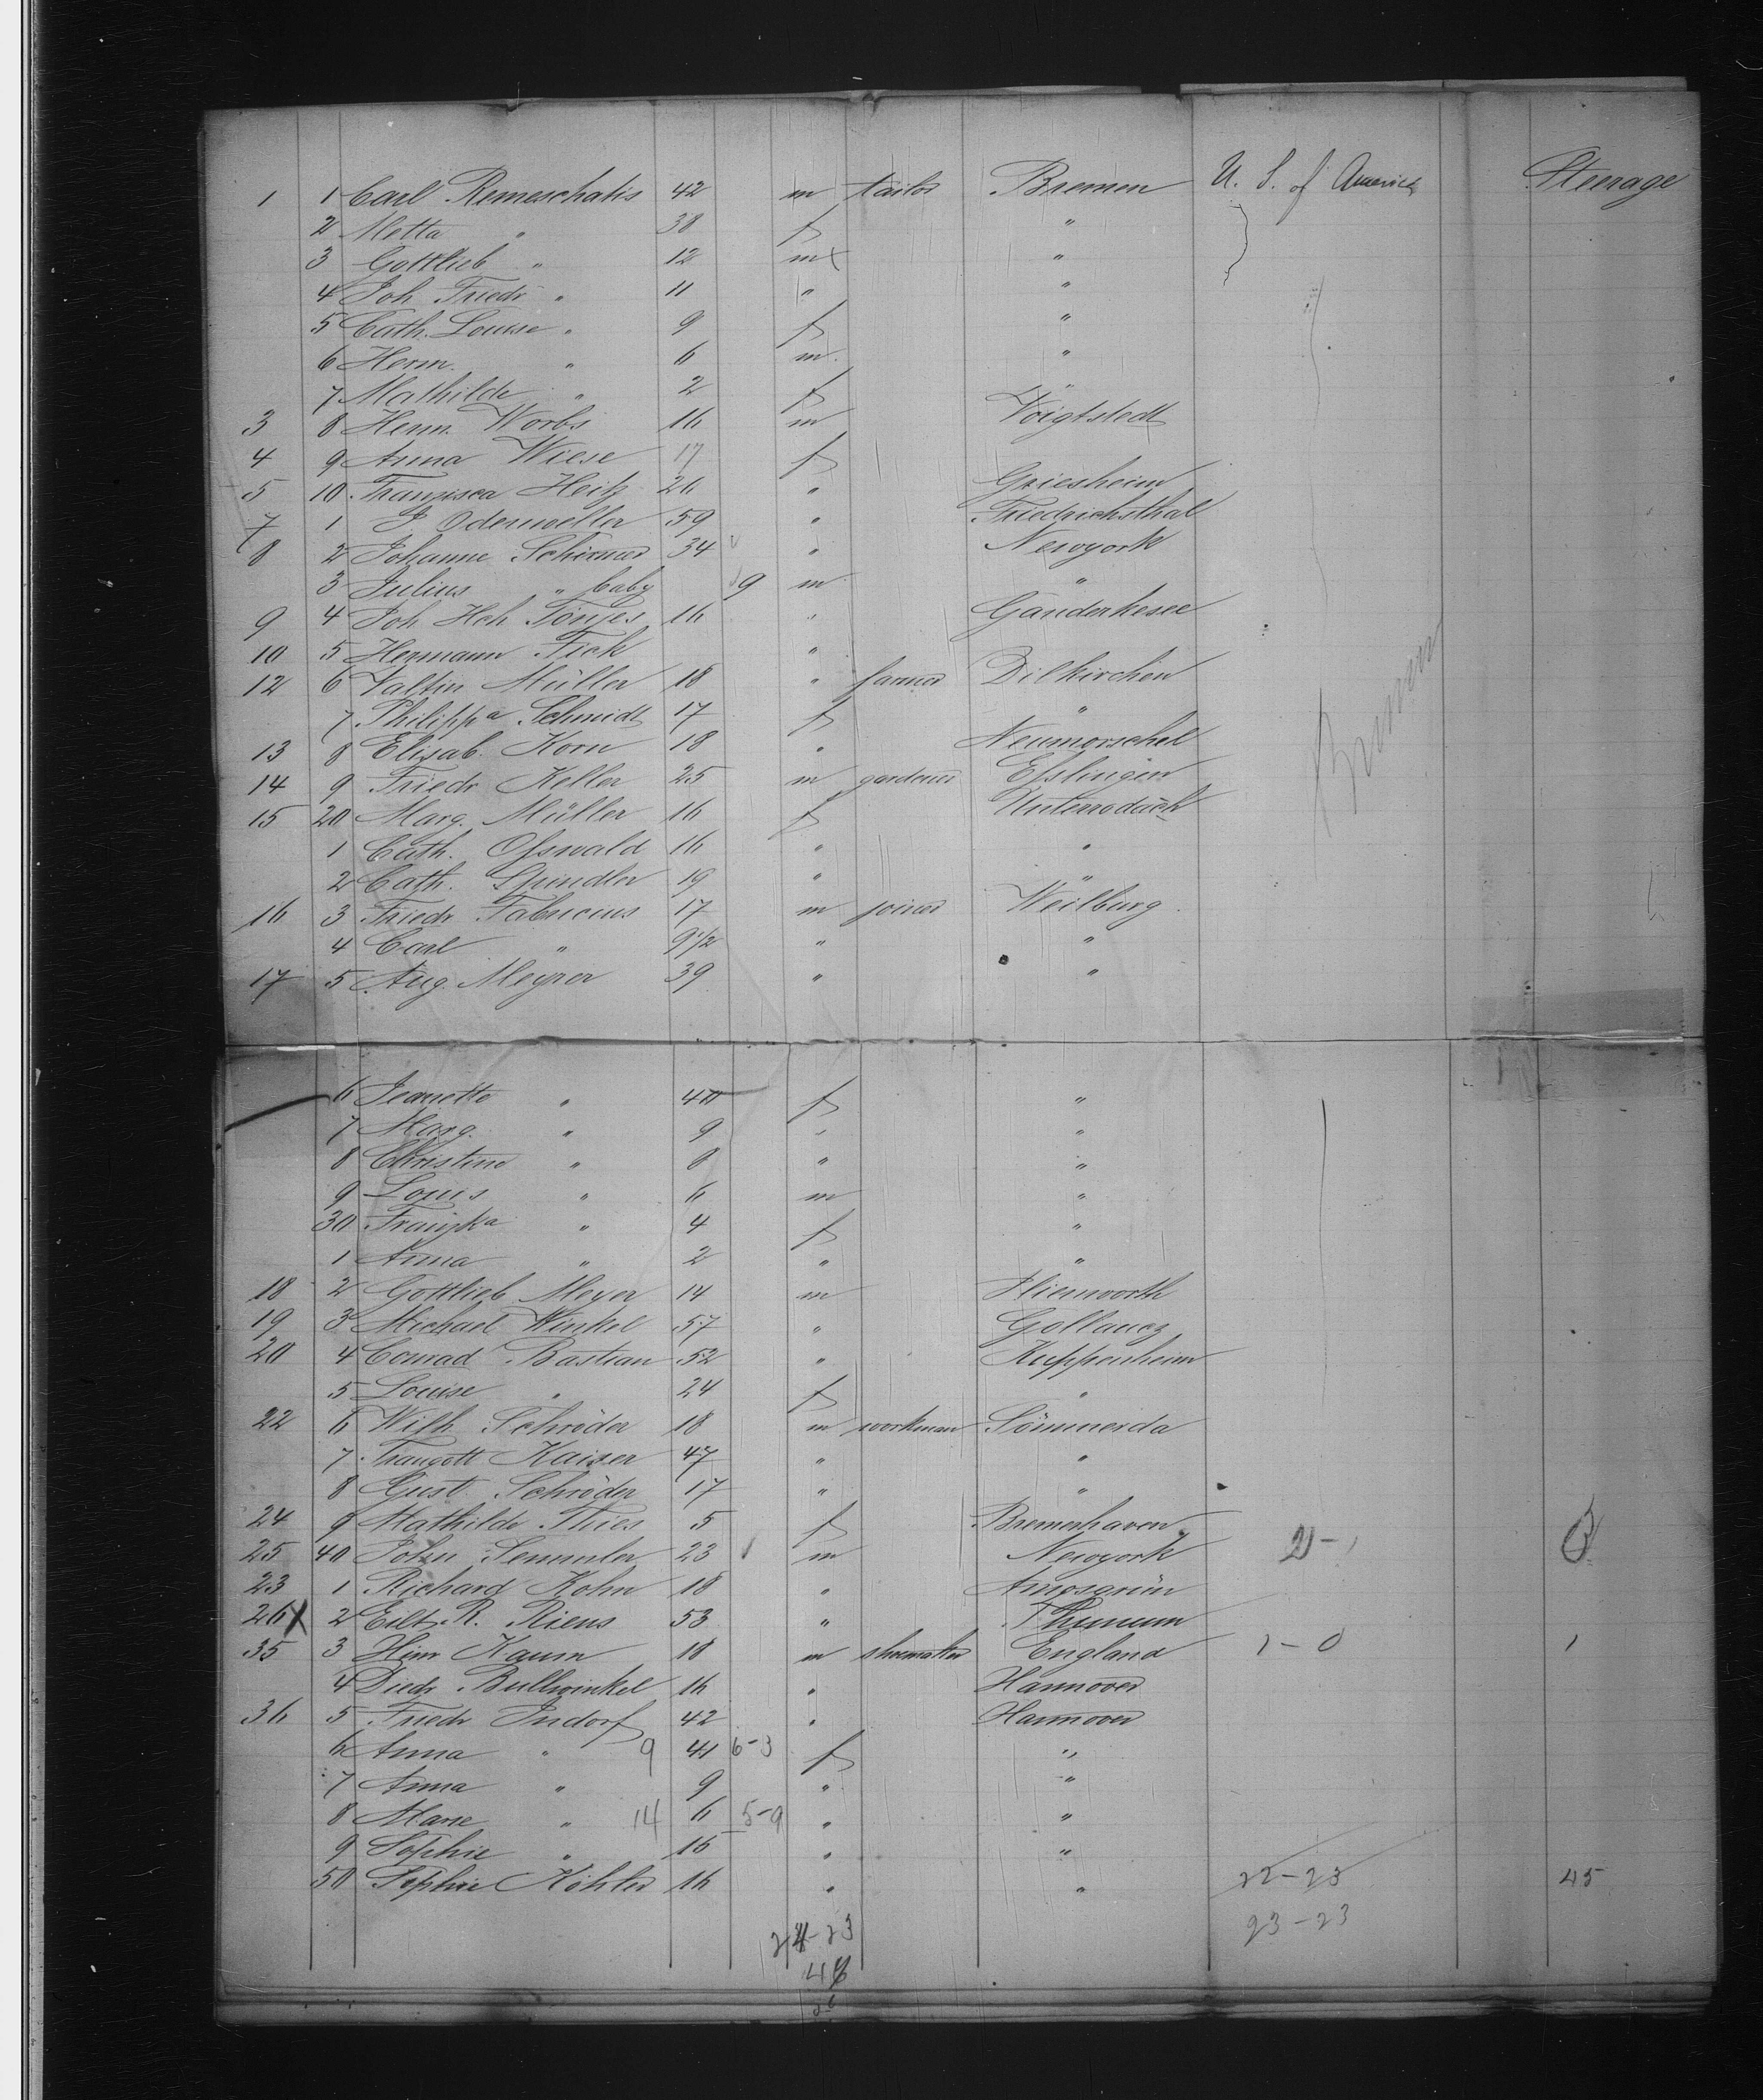 1 1 Carl Remeschatis 42 m tailor Bremen U. S. of America Steerage
2 Metta " 38 f "
3 Gottlieb " 12 m "
4 Joh. Friedr " 11 " "
5 Cath. Louise " 9 f "
6 Herm. " 6 m "
7 Mathilde " 2 f "
3 8 Herm. Worbs 16 m Voigtstedt
4 9 Anna Wiese 17 f
5 10 Franzisca Heitz 26 " Griesheim
7 1 J Odenweller 59 " Friedrichsthal
8 2 Johanne Schirmer 34 " Newyork
3 Julius " baby 9 m "
9 4 Joh Hch Tönjes 16 " Ganderkesee
10 5 Hermann Fick "
12 6 Valtin Müller 18 " farmer Dilkirchen
7 Philippa Schmidt 17 f "
13 8 Elisab. Korn 18 " Neumorschel
14 9 Friedr Keller 25 m gardener Esslingen
Bremen
15 20 Marg. Müller 16 f Unterrodach
1 Cath. Osswald 16 " "
2 Cath. Spindler 19 " "
16 3 Friedr Fabricius 17 m joiner Weilburg
4 Carl " 9 1/2 " "
17 5 Aug. Meyrer 39 " "
6 Jeanette " 40 f "
7 Marg. " 9 " "
8 Christine " 8 " "
9 Louis " 6 m "
30 Franzka " 4 f "
1 Anna " 2 " "
18 2 Gottlieb Meyer 14 m Flienworth
19 3 Michael Winkel 57 " Gollancz
20 4 Conrad Bastian 52 " Kuppenheim
5 Louise " 24 f "
22 6 Wilh Schröder 18 m workman Sömmerda
7 Traugott Kaiser 47 " "
8 Gust. Schröder 17 " "
24 9 Mathilde Thies 5 f Bremerhaven
25 40 John Semmler 23 m Newyork
23 1 Richard Kohn 18 " Amosgrün
26 x 2 Eilt R. Riens 53 " Thunum
35 3 Hinr Kaum 18 m shoemaker England 1-0 1
4 Diedr Bullwinkel 16 " Hannover
36 5 Friedr Indorf 42 " Hannover
6 Anna " 9 41 6-3 f "
7 Anna " 9 " "
8 Marie " 14 6 5-9 " "
9 Sophie " 16 " "
50 Sophie Köhler 16 " " 22-23 45
24-23 23-23